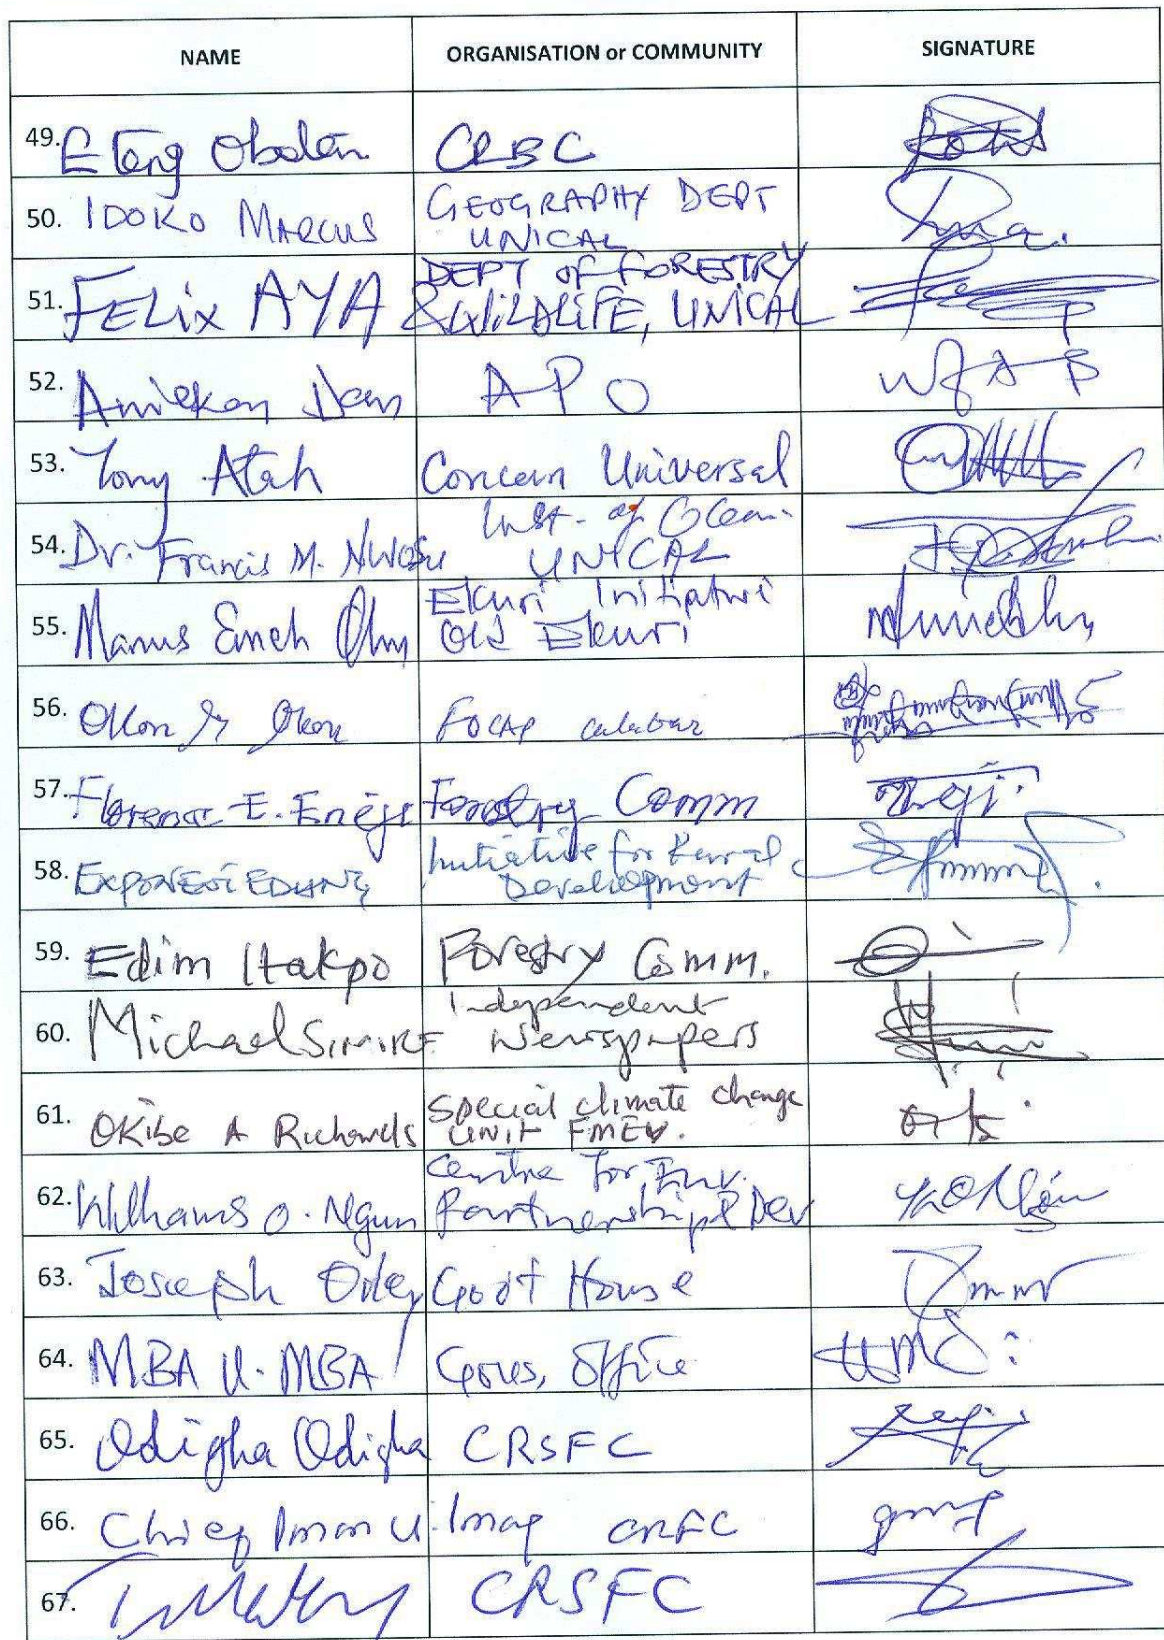 NAME ORGANISATION or COMMUNITY SIGNATURE
49. Eteng Obaten CRBC
50. IDOKO MARCUS GEOGRAPHY DEPT
UNICAL
51. FELIX AYA DEPT OF FORESTRY
& WILDLIFE, UNICAL
52. Aniekan Dan APO
53. Tony Atah Concern Universal
54. Dr. Francis M. Nwosu Inst. of Ocean.
UNICAL
55. Ekuri Initiative
Old Ekuri
56. Okon Okon calabar
57. Florence E. Eneji Forestry Comm
58. Initiative for Rural
Development
59. Edim Itakpo Forestry Comm.
60. Michael SIMIRE Independent
Newspapers
61. OKibe A Richards Special climate change
UNIT
62. Williams O. Ngun Centre for Env.
Partnership & Dev
63. Joseph Govt House
64. MBA U. MBA Office
65. Odigha Odigha CRSFC
66. Chief
67. CRSFC